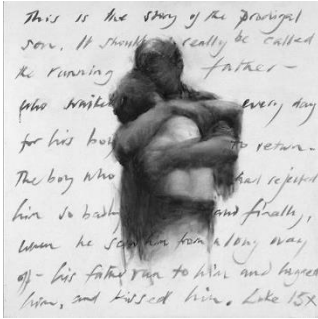 This is the story of the prodigal
son. It should really be called
the running father –
who waited every day
for his boy to return.
The boy who had rejected
him so badly and finally,
when he saw him from a long way
off – his father ran to him and hugged
him, and kissed him. Luke 15